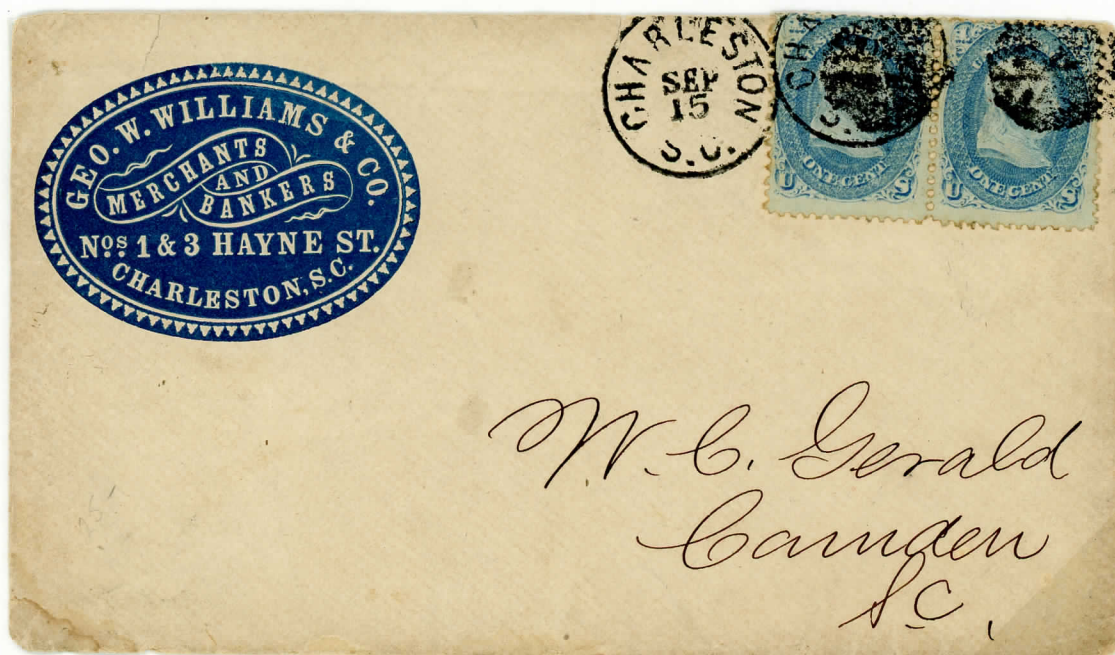 GEO. W. WILLIAMS & CO.
MERCHANTS
AND
BANKERS
Nos. 1 & 3 HAYNE ST.
CHARLESTON, S.C.
CHARLESTON
SEP
15
S.C.
CHA
S.
U ONE CENT
U ONE CENT
W. C. Gerald
Camden
S.C.